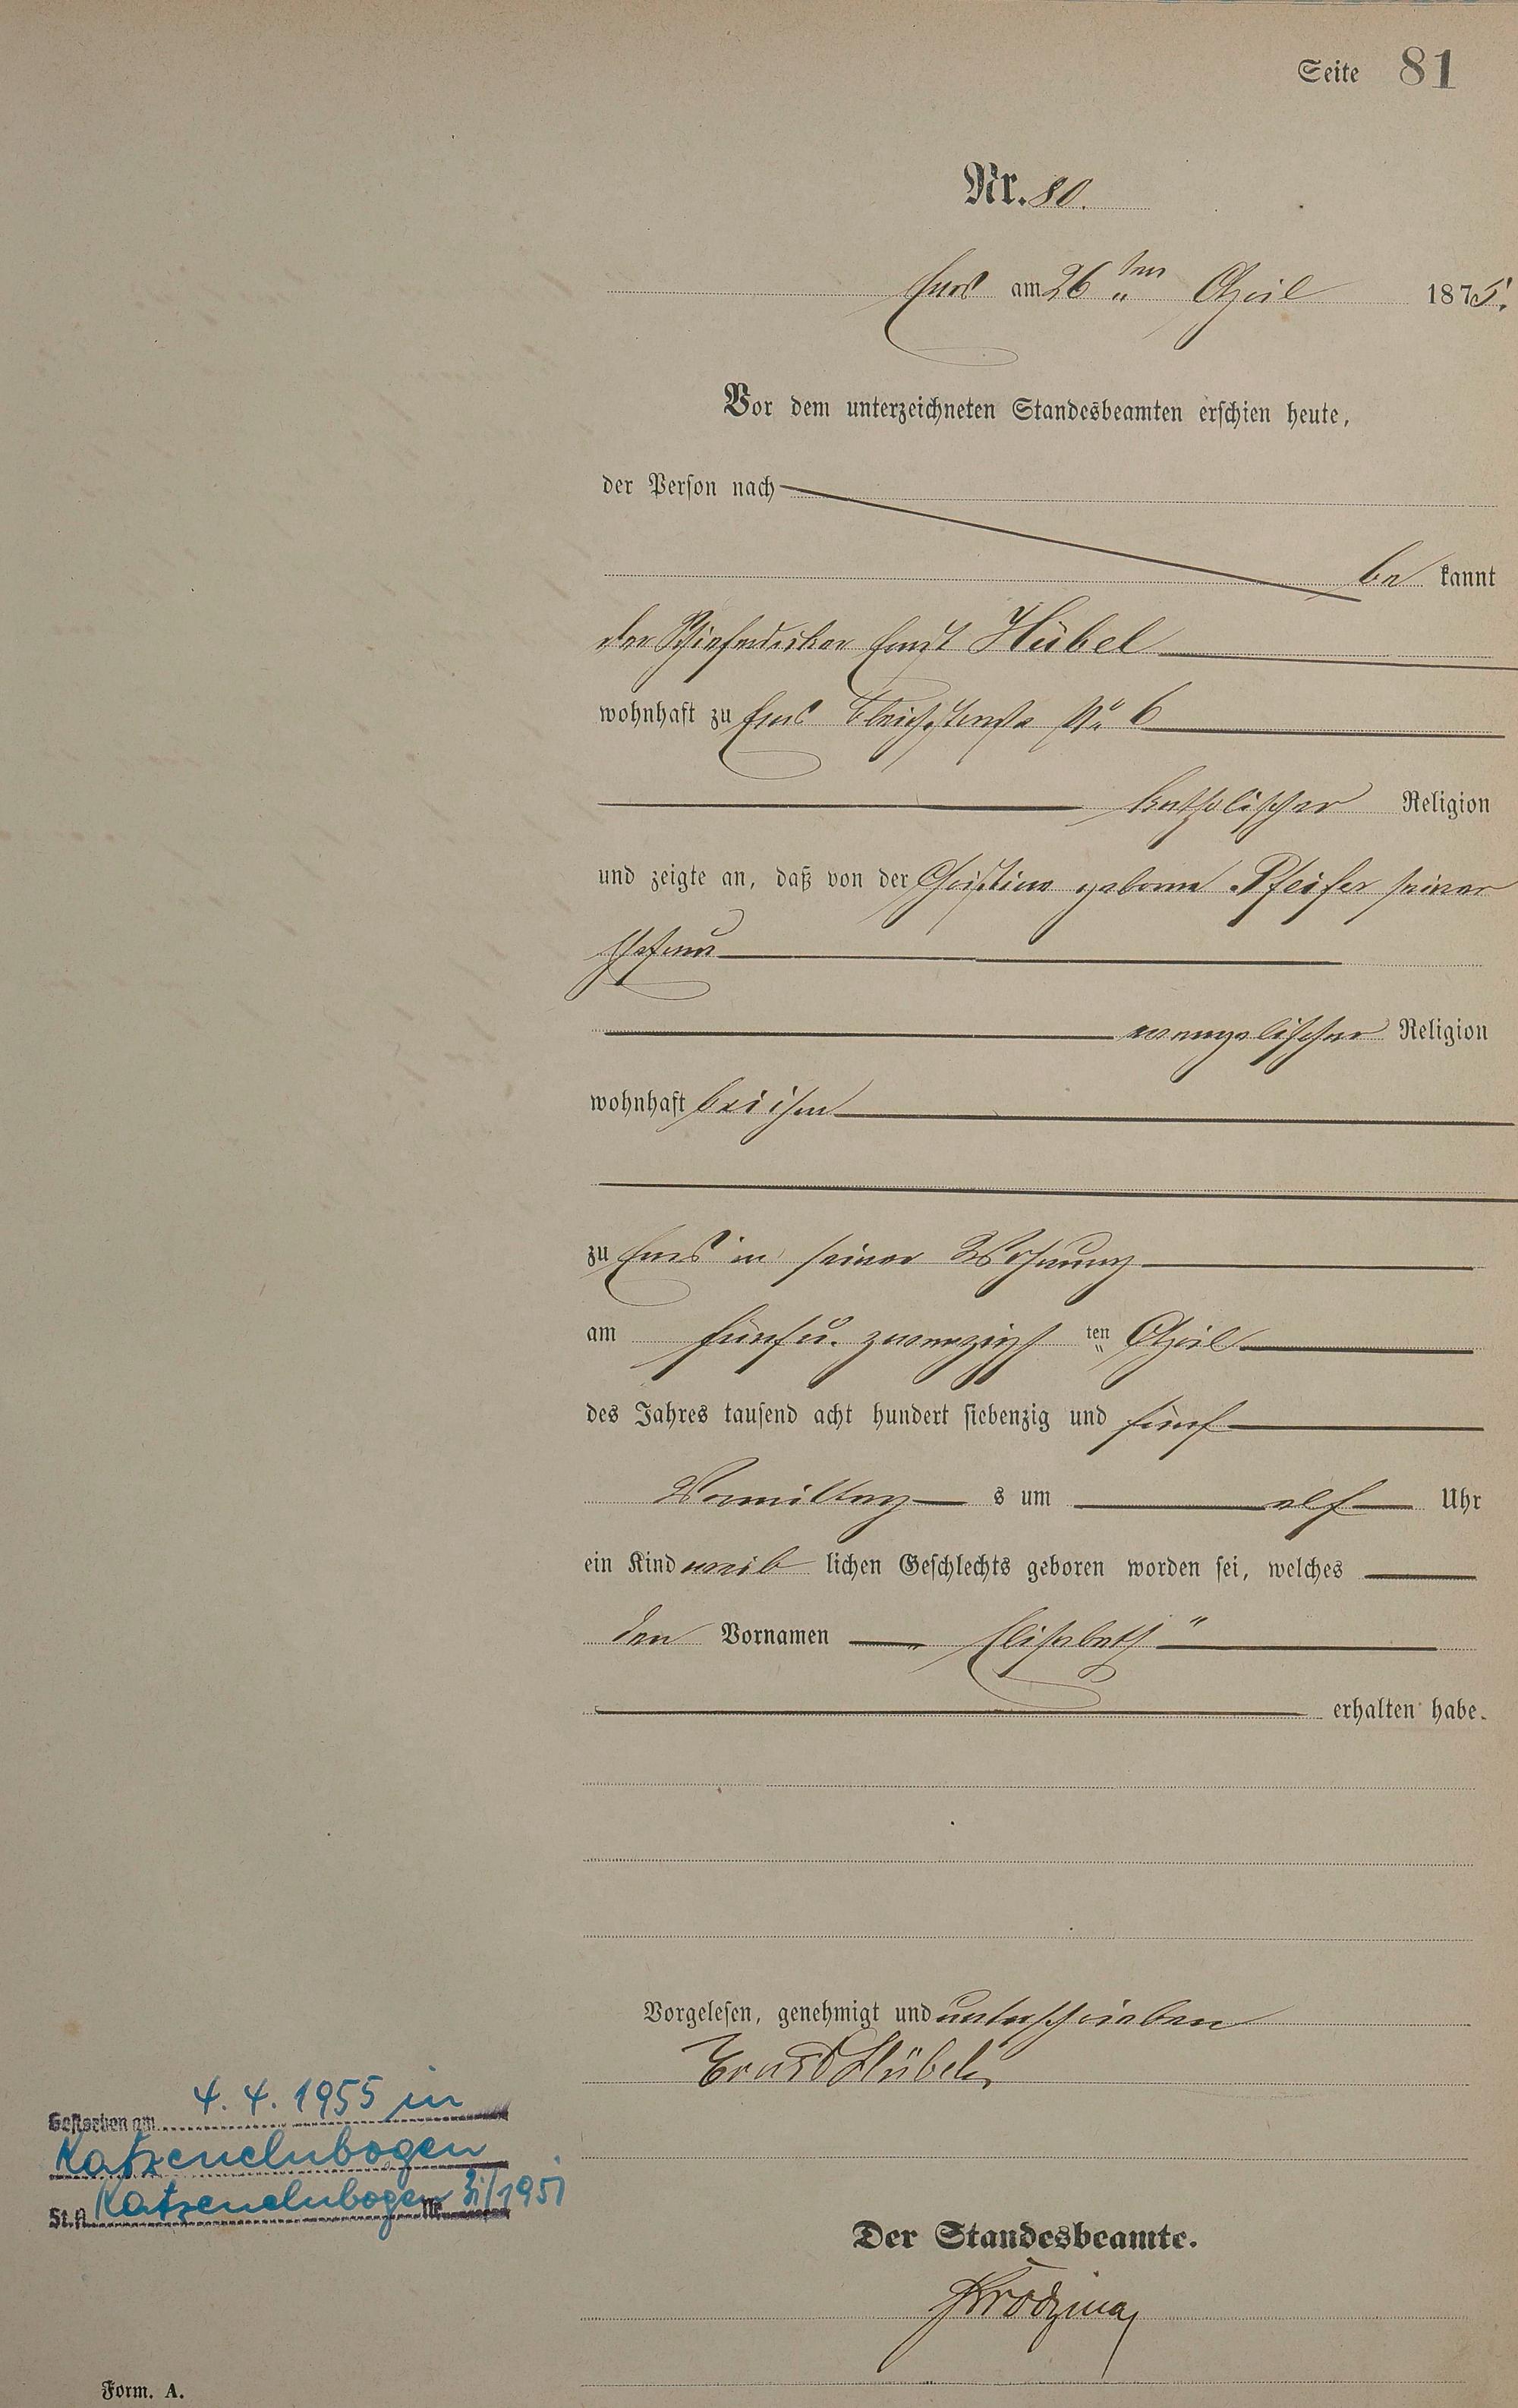 Seite 81
Nr. 80.
Ems am 26ten April 1875.
Vor dem unterzeichneten Standesbeamten erschien heute,
der Person nach
be kannt
der Schieferdecker Ernst Hübel
wohnhaft zu Ems Bleichstraße No 6
katholischer Religion
und zeigte an, daß von der Christine geborne Pfeifer seiner
Ehefrau
evangelischer Religion
wohnhaft bei ihm
zu Ems in seiner Wohnung
am fünf u. zwanzigsten April
des Jahres tausend acht hundert siebenzig und fünf
Vormittag s um elf Uhr
ein Kind weib lichen Geschlechts geboren worden sei, welches
den Vornamen „Elisabeth"
erhalten habe.
Vorgelesen, genehmigt und unterschrieben
Ernst Hübel
Gestorben am 4. 4. 1955 in
Katzenelnbogen
St.A. Katzenelnbogen Nr.
Der Standesbeamte.
Form. A.